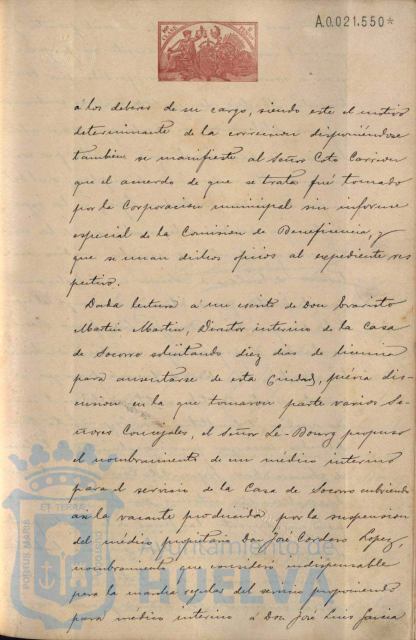 A.0.021.550*
á los deberes de su cargo, siendo este el motivo
determinante de la correccion disponiéndose
tambien se manifieste al Señor Coto Carrion
que el acuerdo de que se trata fué tomado
por la Corporacion municipal sin informe
especial de la Comision de Beneficencia, y
que se unan dichos oficios al expediente res
pectivo.
Dada lectura á un escrito de Don Evaristo
Martin Martin, Director interino de la Casa
de Socorro solicitando diez dias de licencia
para ausentarse de esta Ciudad, prévia dis-
cusion en la que tomaron parte varios Se-
ñores Concejales, el Señor Le-Bourg propuso
el nombramiento de un médico interino
para el servicio de la Casa de Socorro cubriendo
asi la vacante producida por la suspension
del médico propietario Don José Cordero Lopez,
nombramiento que consideró indispensable
para la marcha regular del servicio proponiendo
para médico interino á Don José Luis Garcia
PORTUS MARIS
ET TERRAE
Ayuntamiento de
HUELVA